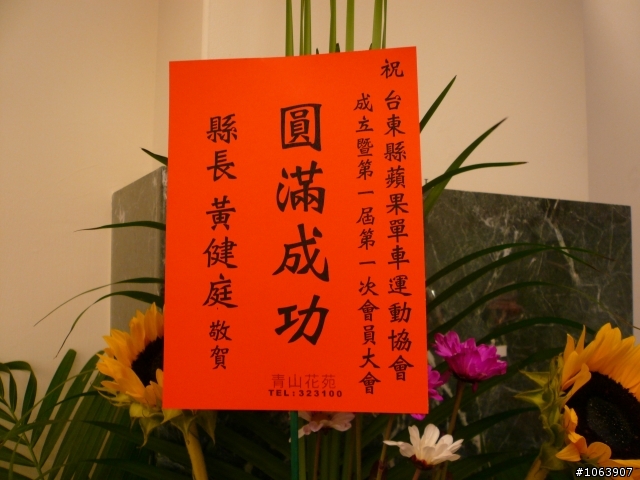 祝
台東縣蘋果單車運動協會
成立暨第一屆第一次會員大會
圓滿成功
縣長 黃健庭 敬賀
青山花苑
TEL:323100
#1063907